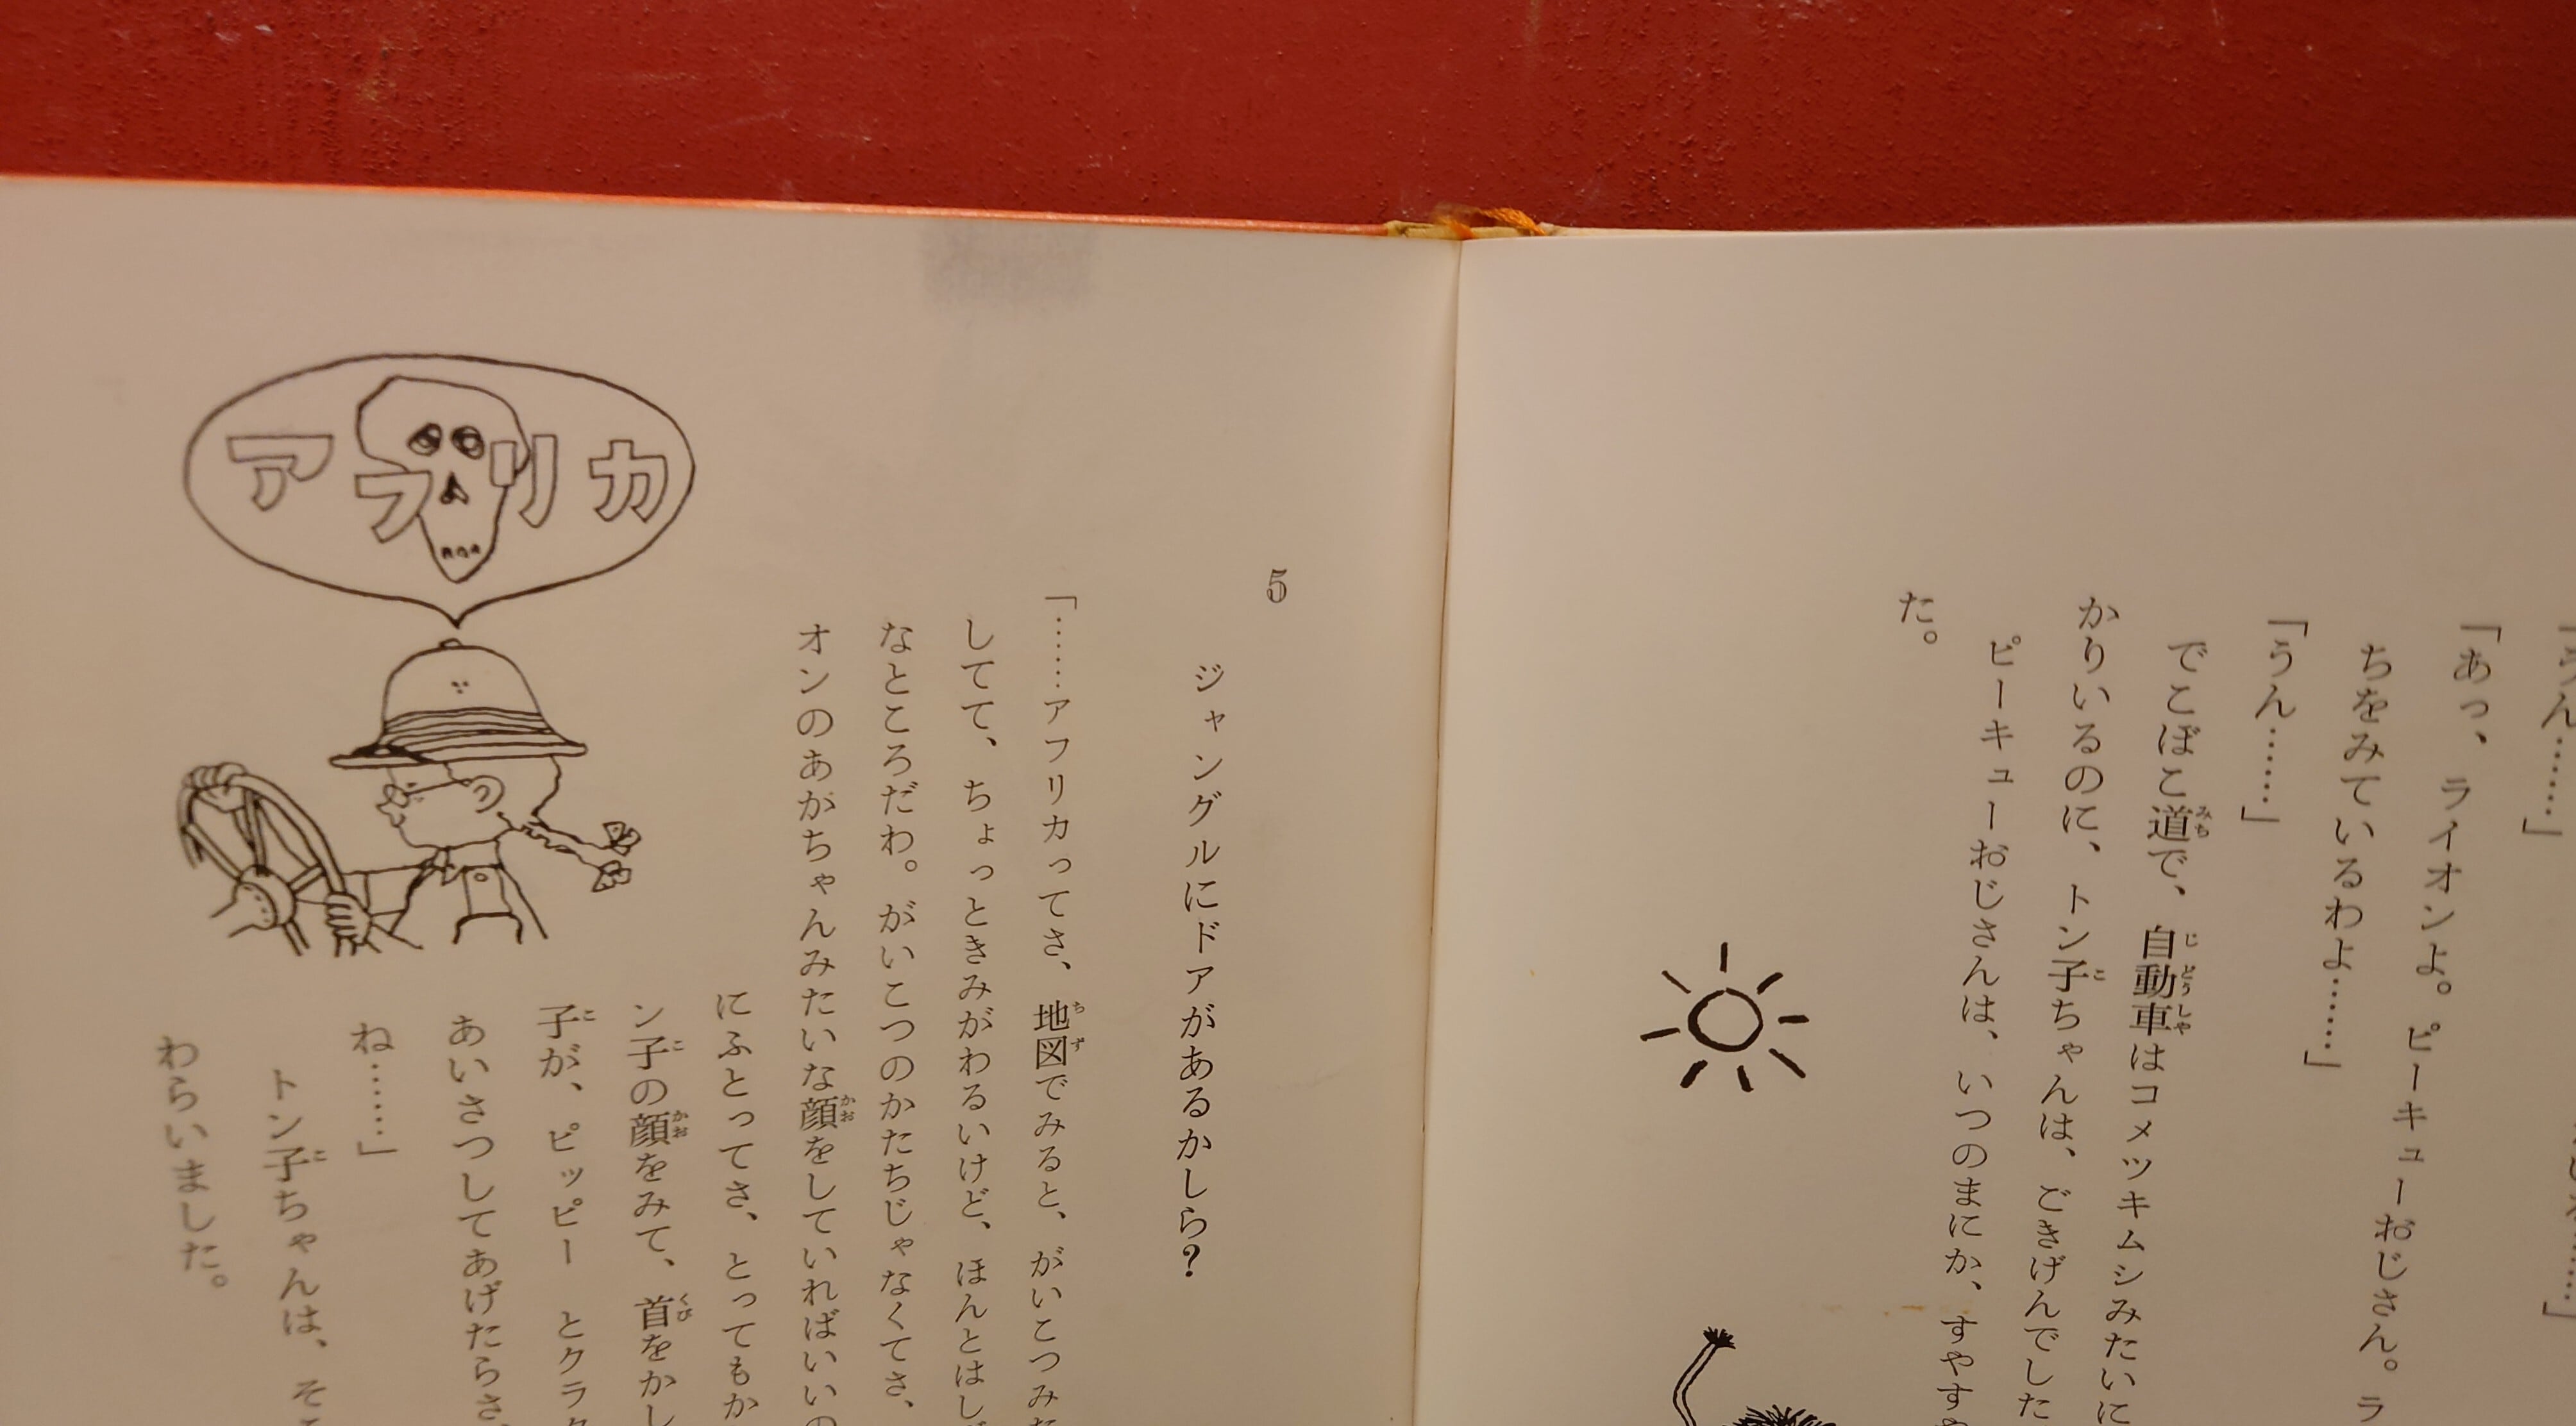 「あっ、ライオンよ。ピーキューおじさん。ラ
ちをみているわよ……」
「うん……」
でこぼこ道で、自動車はコメツキムシみたいに
かりいるのに、トン子ちゃんは、ごきげんでした
た。
ピーキューおじさんは、いつのまにか、すやす
5
ジャングルにドアがあるかしら?
「……アフリカってさ、地図でみると、がいこつみ
してて、ちょっときみがわるいけど、ほんとはし
なところだわ。がいこつのかたちじゃなくてさ、
オンのあがちゃんみたいな顔をしていればいいの
にふとってさ、とってもか
ン子の顔をみて、首をかし
子が、ピッピー とクラク
あいさつしてあげたらさ、
ね……」
トン子ちゃんは、そ
わらいました。
アフリカ